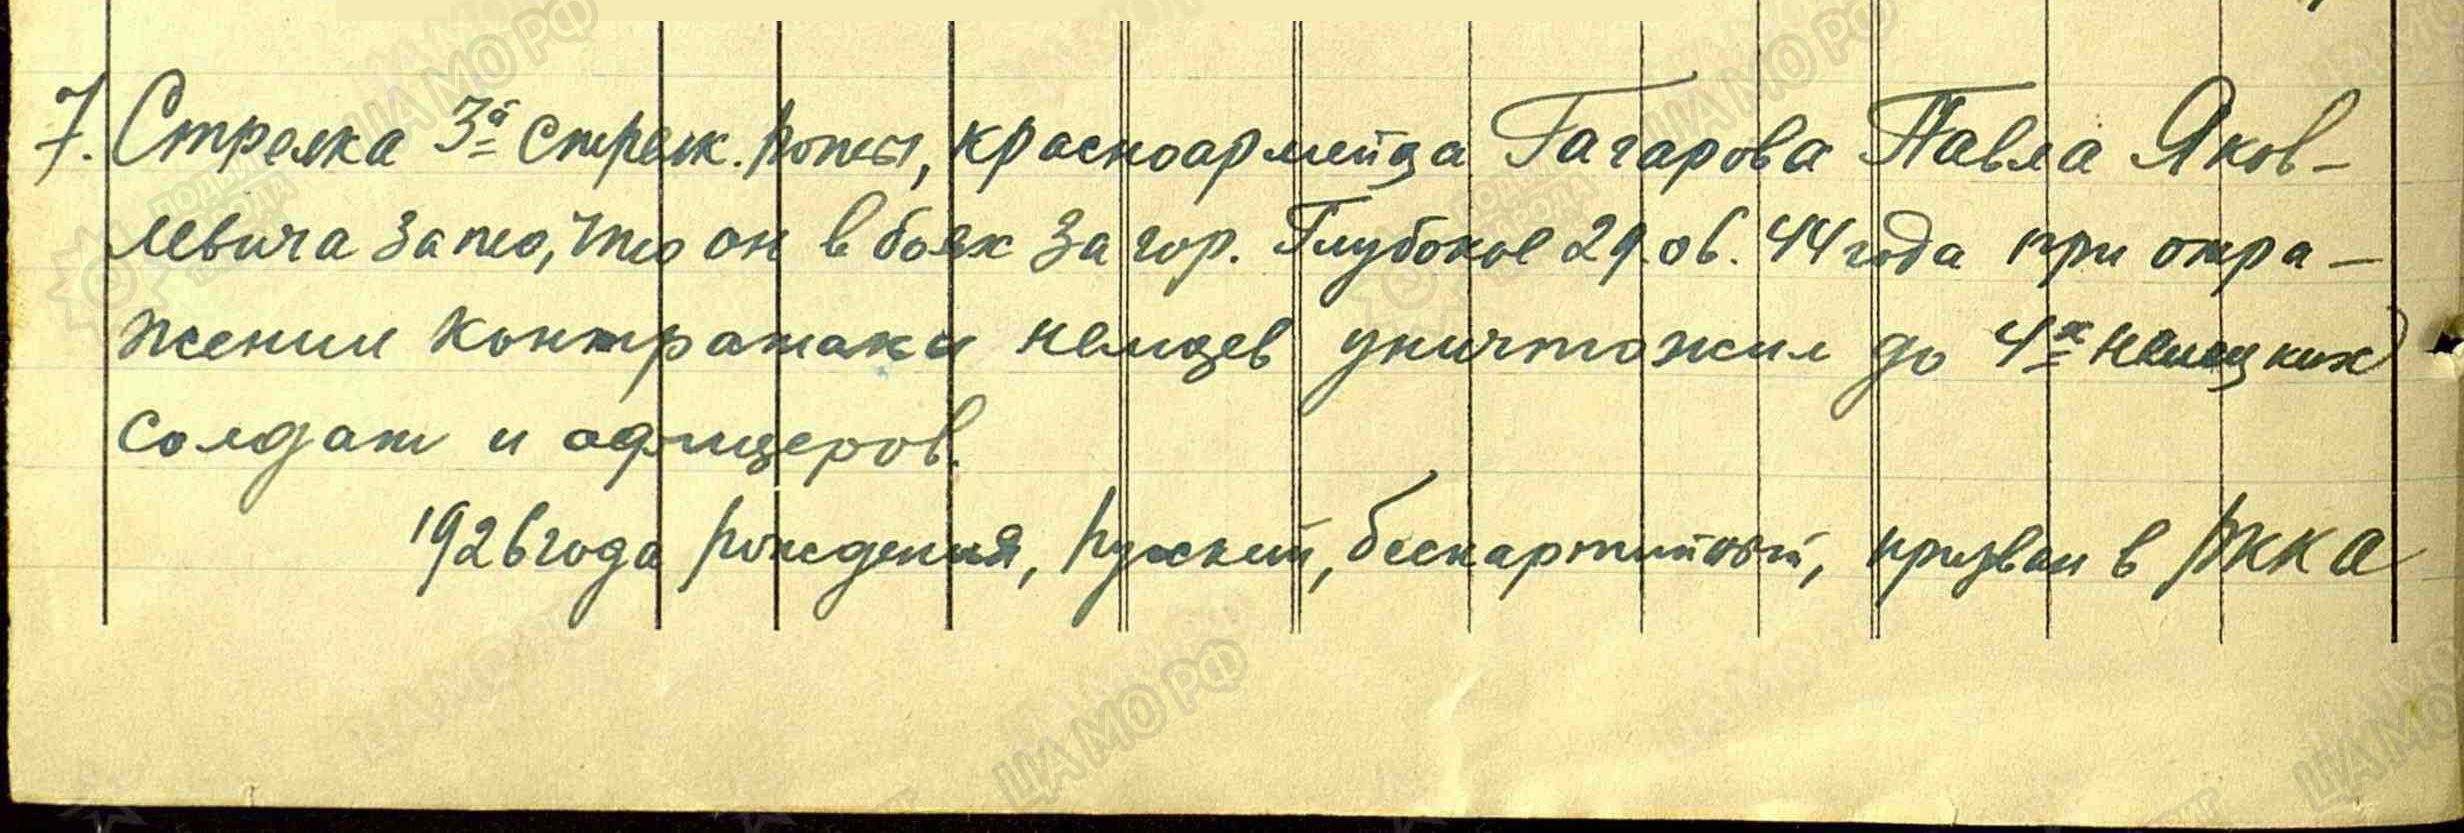 7. Стрелка 3й стрелк. роты, красноармейца Гагарова Павла Яков-
левича за то, что он в боях за гор. Глубокое 29.06.44 года при отра-
жении контратаки немцев уничтожил до 4х немецких
солдат и офицеров.
1926 года рождения, русский, беспартийный, призван в РККА